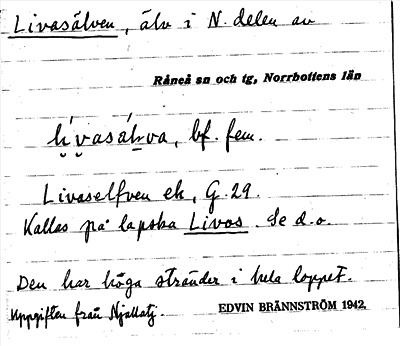 Livasälven, älv i N. delen av
Råneå sn och tg, Norrbottens län
lívasáḷva, bf. fem.
Livaselfven ek, G. 29.
Kallas på lapska Livos. Se d.o.
Den har höga stränder i hela loppet.
Uppgiften från Njallatj.
EDVIN BRÄNNSTRÖM 1942.